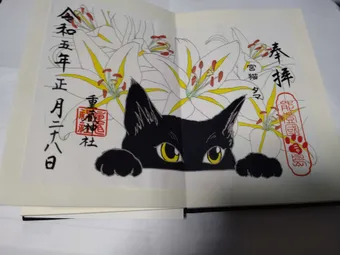 奉拝
宮猫 夕
重蔵神社
令和五年正月二十八日